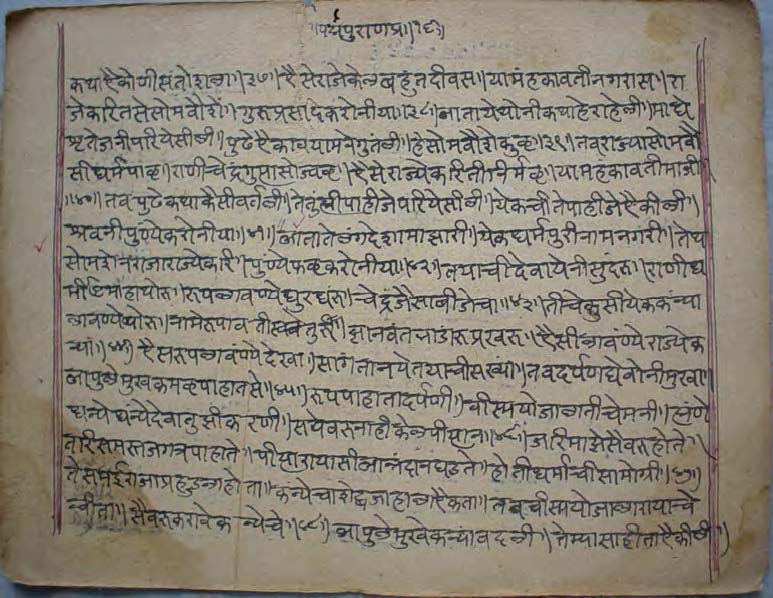 पद्मपुराणप्र॥१६॥
कथा ऐकोणी संतोशला॥३७॥ ऐसे राजे केले बहुत दीवस॥ या मंहकावती नगरास॥ रा
जे करितसे सोमवौशे॥ गुरूप्रसादे करोनीया॥३८॥ आता येथोनी कथा हे राहेली॥ माघे
श्रृतेजनी परियेसीली॥ पुढे ऐकावया मने गुंतली॥ हे सोमवौशे कुळ॥३९॥ तव राज्या सोमवौ
सी धर्मपाळ॥ राणी चंद्रगुप्ता सोज्वळ॥ ऐसे राज्ये करिती निर्मळ॥ या मंहकावती माजी
॥४०॥ तव पुढे कथा कैसी वर्तली॥ ते तुंह्मी पाहीजे परियेसीली॥ येकचीते पाहीजे ऐकीली॥
श्रवनी पुण्ये करोनीया॥४१॥ आता तेलंगदेशामाझारी॥ येक धर्मपुरी नाम नगरी॥ तेथ
सोमशेन राजा राज्ये करि॥ पुण्येफळ करोनीया॥४२॥ तयाची देवायेनी सुंदरू॥ राणी ध
माहाथोरू॥ रूपलावण्ये धुरधंरू॥ चंद्र जैसा बीजेचा॥४३॥ तीचे कुसी येक कंन्या
लावण्ये थोरू॥ नामे रूपावती चतुरू॥ ज्ञानवंत भांडारू प्रखरू॥ ऐसी लावंण्ये राज्येक
न्या॥४४॥ ऐसे रूप लावंण्ये देखा॥ सांगता नये तयाची संख्या॥ तव दर्पण घेवोनी मुखा॥
आपुले मुखकमळ पाहातसे॥४५॥ रूप पाहाता दर्पणी॥ वीस्मयो जाला तीचे मनी॥ ह्मणे
धन्ये धन्ये देवा तुझी करणी॥ सयेवरू नाही केले पीसान॥४६॥ जरि माझे सैवरू होते॥
तरि समस्त जगत्र पाहाते॥ पीसारायासी आनंदान घडते॥ होती धर्माची सामोग्री॥४७॥
ते समई राजा प्रहुडला होता॥ कंन्येचा शेद्ब जाहाला ऐकता॥ तव वीस्मयो जाला रायाचे
चीता॥ सैवरू करावे कन्येचे॥४८॥ आपुले मुखे कन्या वदली॥ तेम्या साहीता ऐकीली॥